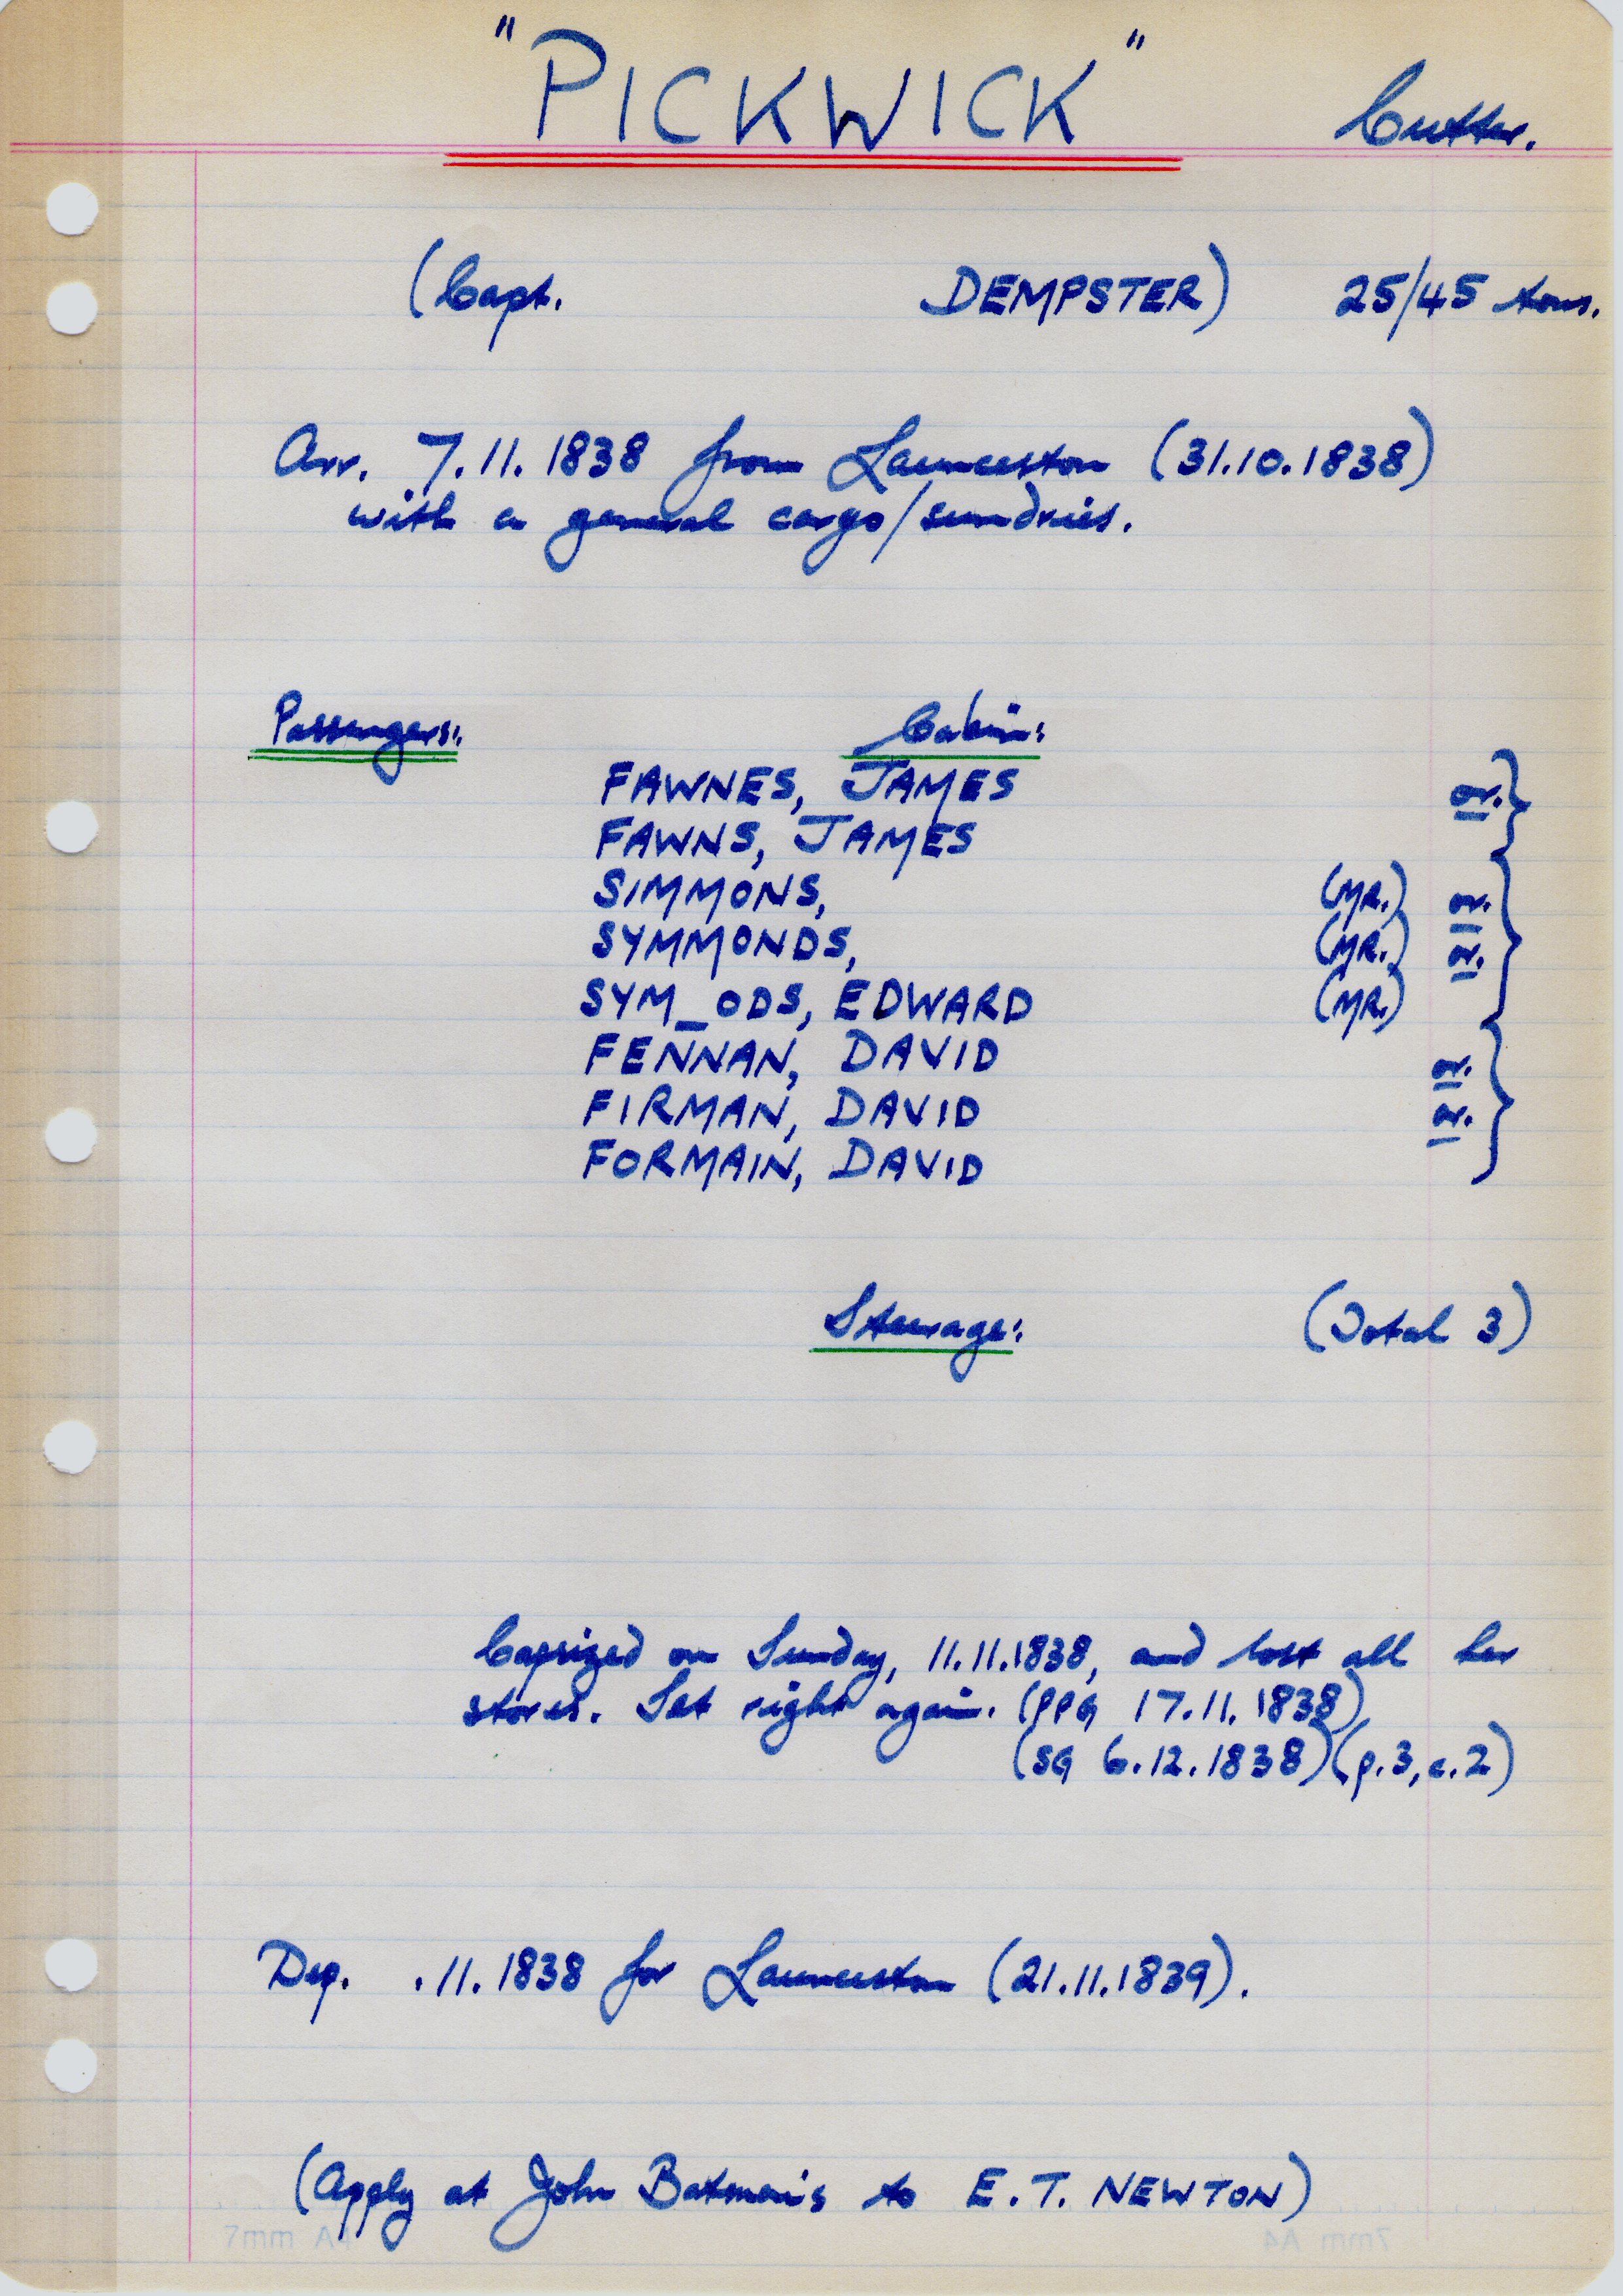 "PICKWICK" Cutter.
(Capt. DEMPSTER) 25/45 tons.
Arr. 7.11.1838 from Launceston (31.10.1838)
with a general cargo/sundries.
Passengers: Cabin:
FAWNES, JAMES or.}
FAWNS, JAMES
SIMMONS, (MR.) or.}
SYMMONDS, (MR.) or.
SYM_ODS, EDWARD (MR.)
FENNAN, DAVID or.}
FIRMAN, DAVID or.
FORMAIN, DAVID
Steerage: (Total 3)
Capsized on Sunday, 11.11.1838, and lost all her
stores. Set right again. (PPG 17.11.1838)
(SG 6.12.1838)(p.3,c.2)
Dep. .11.1838 for Launceston (21.11.1839).
(Apply at John Batman's to E.T. NEWTON)
7mm A4 7mm A4